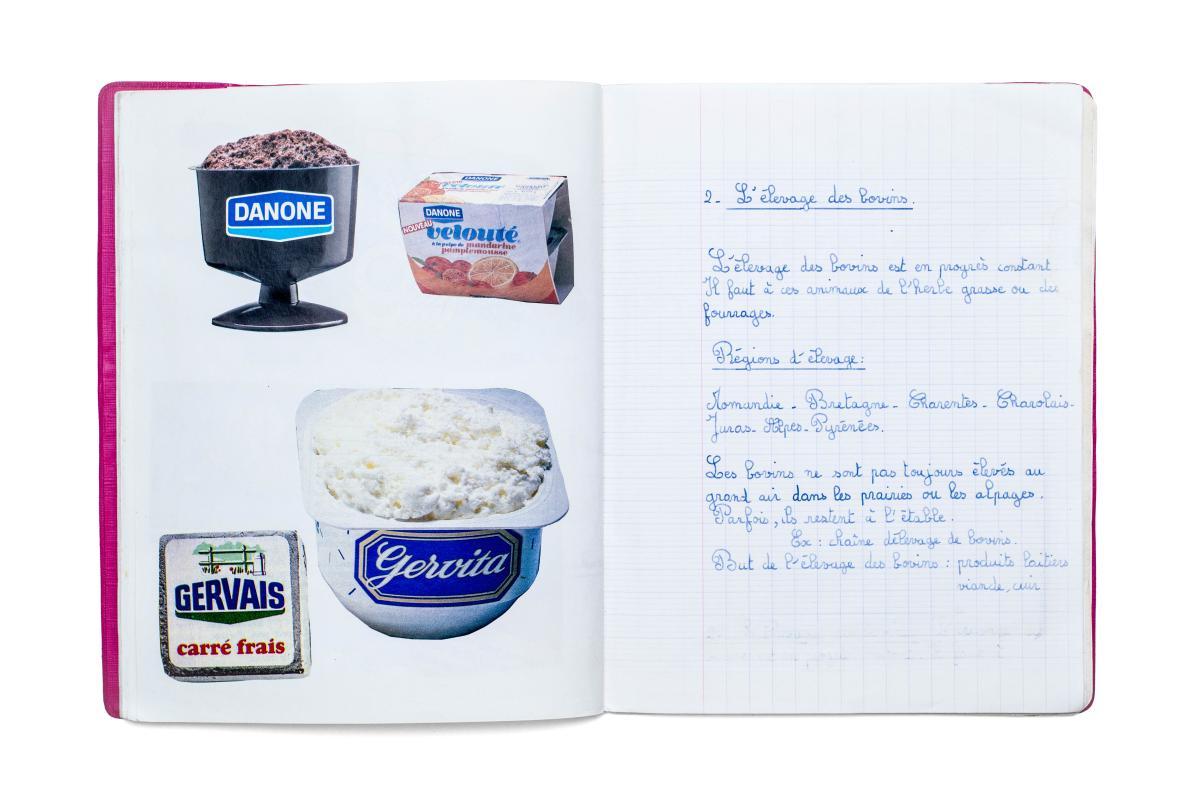 DANONE
DANONE
velouté
DANONE
NOUVEAU
velouté
à la pulpe de mandarine
pamplemousse
Gervita
GERVAIS
carré frais
2_ L'élevage des bovins.
L'élevage des bovins est en progrès constant
Il faut à ces animaux de l'herbe grasse ou des
fourrages.
Régions d'élevage:
Normandie _ Bretagne _ Charentes _ Charolais_
Juras_ Alpes_ Pyrénées.
Les bovins ne sont pas toujours élevés au
grand air dans les prairies ou les alpages.
Parfois, ils restent à l'étable.
Ex : chaîne d'élevage de bovins.
But de l'élevage des bovins : produits laitiers
viande, cuir